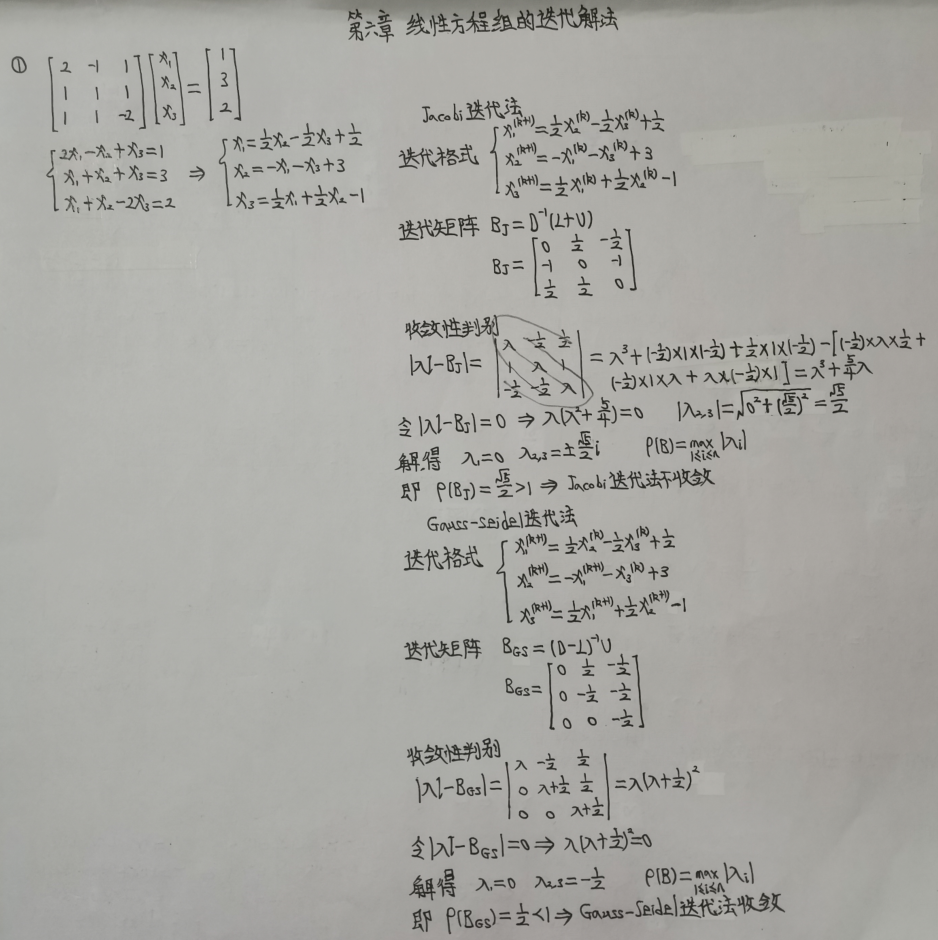 第六章 线性方程组的迭代解法
① [2 -1 1; 1 1 1; 1 1 -2] [x₁; x₂; x₃] = [1; 3; 2]
{2x₁-x₂+x₃=1
x₁+x₂+x₃=3
x₁+x₂-2x₃=2
⇒ {x₁=½x₂-½x₃+½
x₂=-x₁-x₃+3
x₃=½x₁+½x₂-1
Jacobi迭代法
迭代格式 {x₁^(k+1)=½x₂^(k)-½x₃^(k)+½
x₂^(k+1)=-x₁^(k)-x₃^(k)+3
x₃^(k+1)=½x₁^(k)+½x₂^(k)-1
迭代矩阵 B_J=D⁻¹(L+U)
B_J=[0 ½ -½; -1 0 -1; ½ ½ 0]
收敛性判别
|λI-B_J|=|λ -½ ½; 1 λ 1; -½ -½ λ|=λ³+(-½)×1×(-½)+½×1×(-½)-[(-½)×λ×½+
(-½)×1×λ+λ×(-½)×1]=λ³+5/4λ
令|λI-B_J|=0 ⇒ λ(λ²+5/4)=0 |λ₂,₃|=√(0²+(√5/2)²)=√5/2
解得 λ₁=0 λ₂,₃=±√5/2 i ρ(B)=max_{1≤i≤n}|λᵢ|
即 ρ(B_J)=√5/2>1 ⇒ Jacobi迭代法不收敛
Gauss-Seidel迭代法
迭代格式 {x₁^(k+1)=½x₂^(k)-½x₃^(k)+½
x₂^(k+1)=-x₁^(k+1)-x₃^(k)+3
x₃^(k+1)=½x₁^(k+1)+½x₂^(k+1)-1
迭代矩阵 B_GS=(D-L)⁻¹U
B_GS=[0 ½ -½; 0 -½ -½; 0 0 -½]
收敛性判别
|λI-B_GS|=|λ -½ ½; 0 λ+½ ½; 0 0 λ+½|=λ(λ+½)²
令|λI-B_GS|=0 ⇒ λ(λ+½)²=0
解得 λ₁=0 λ₂,₃=-½ ρ(B)=max_{1≤i≤n}|λᵢ|
即 ρ(B_GS)=½<1 ⇒ Gauss-Seidel迭代法收敛